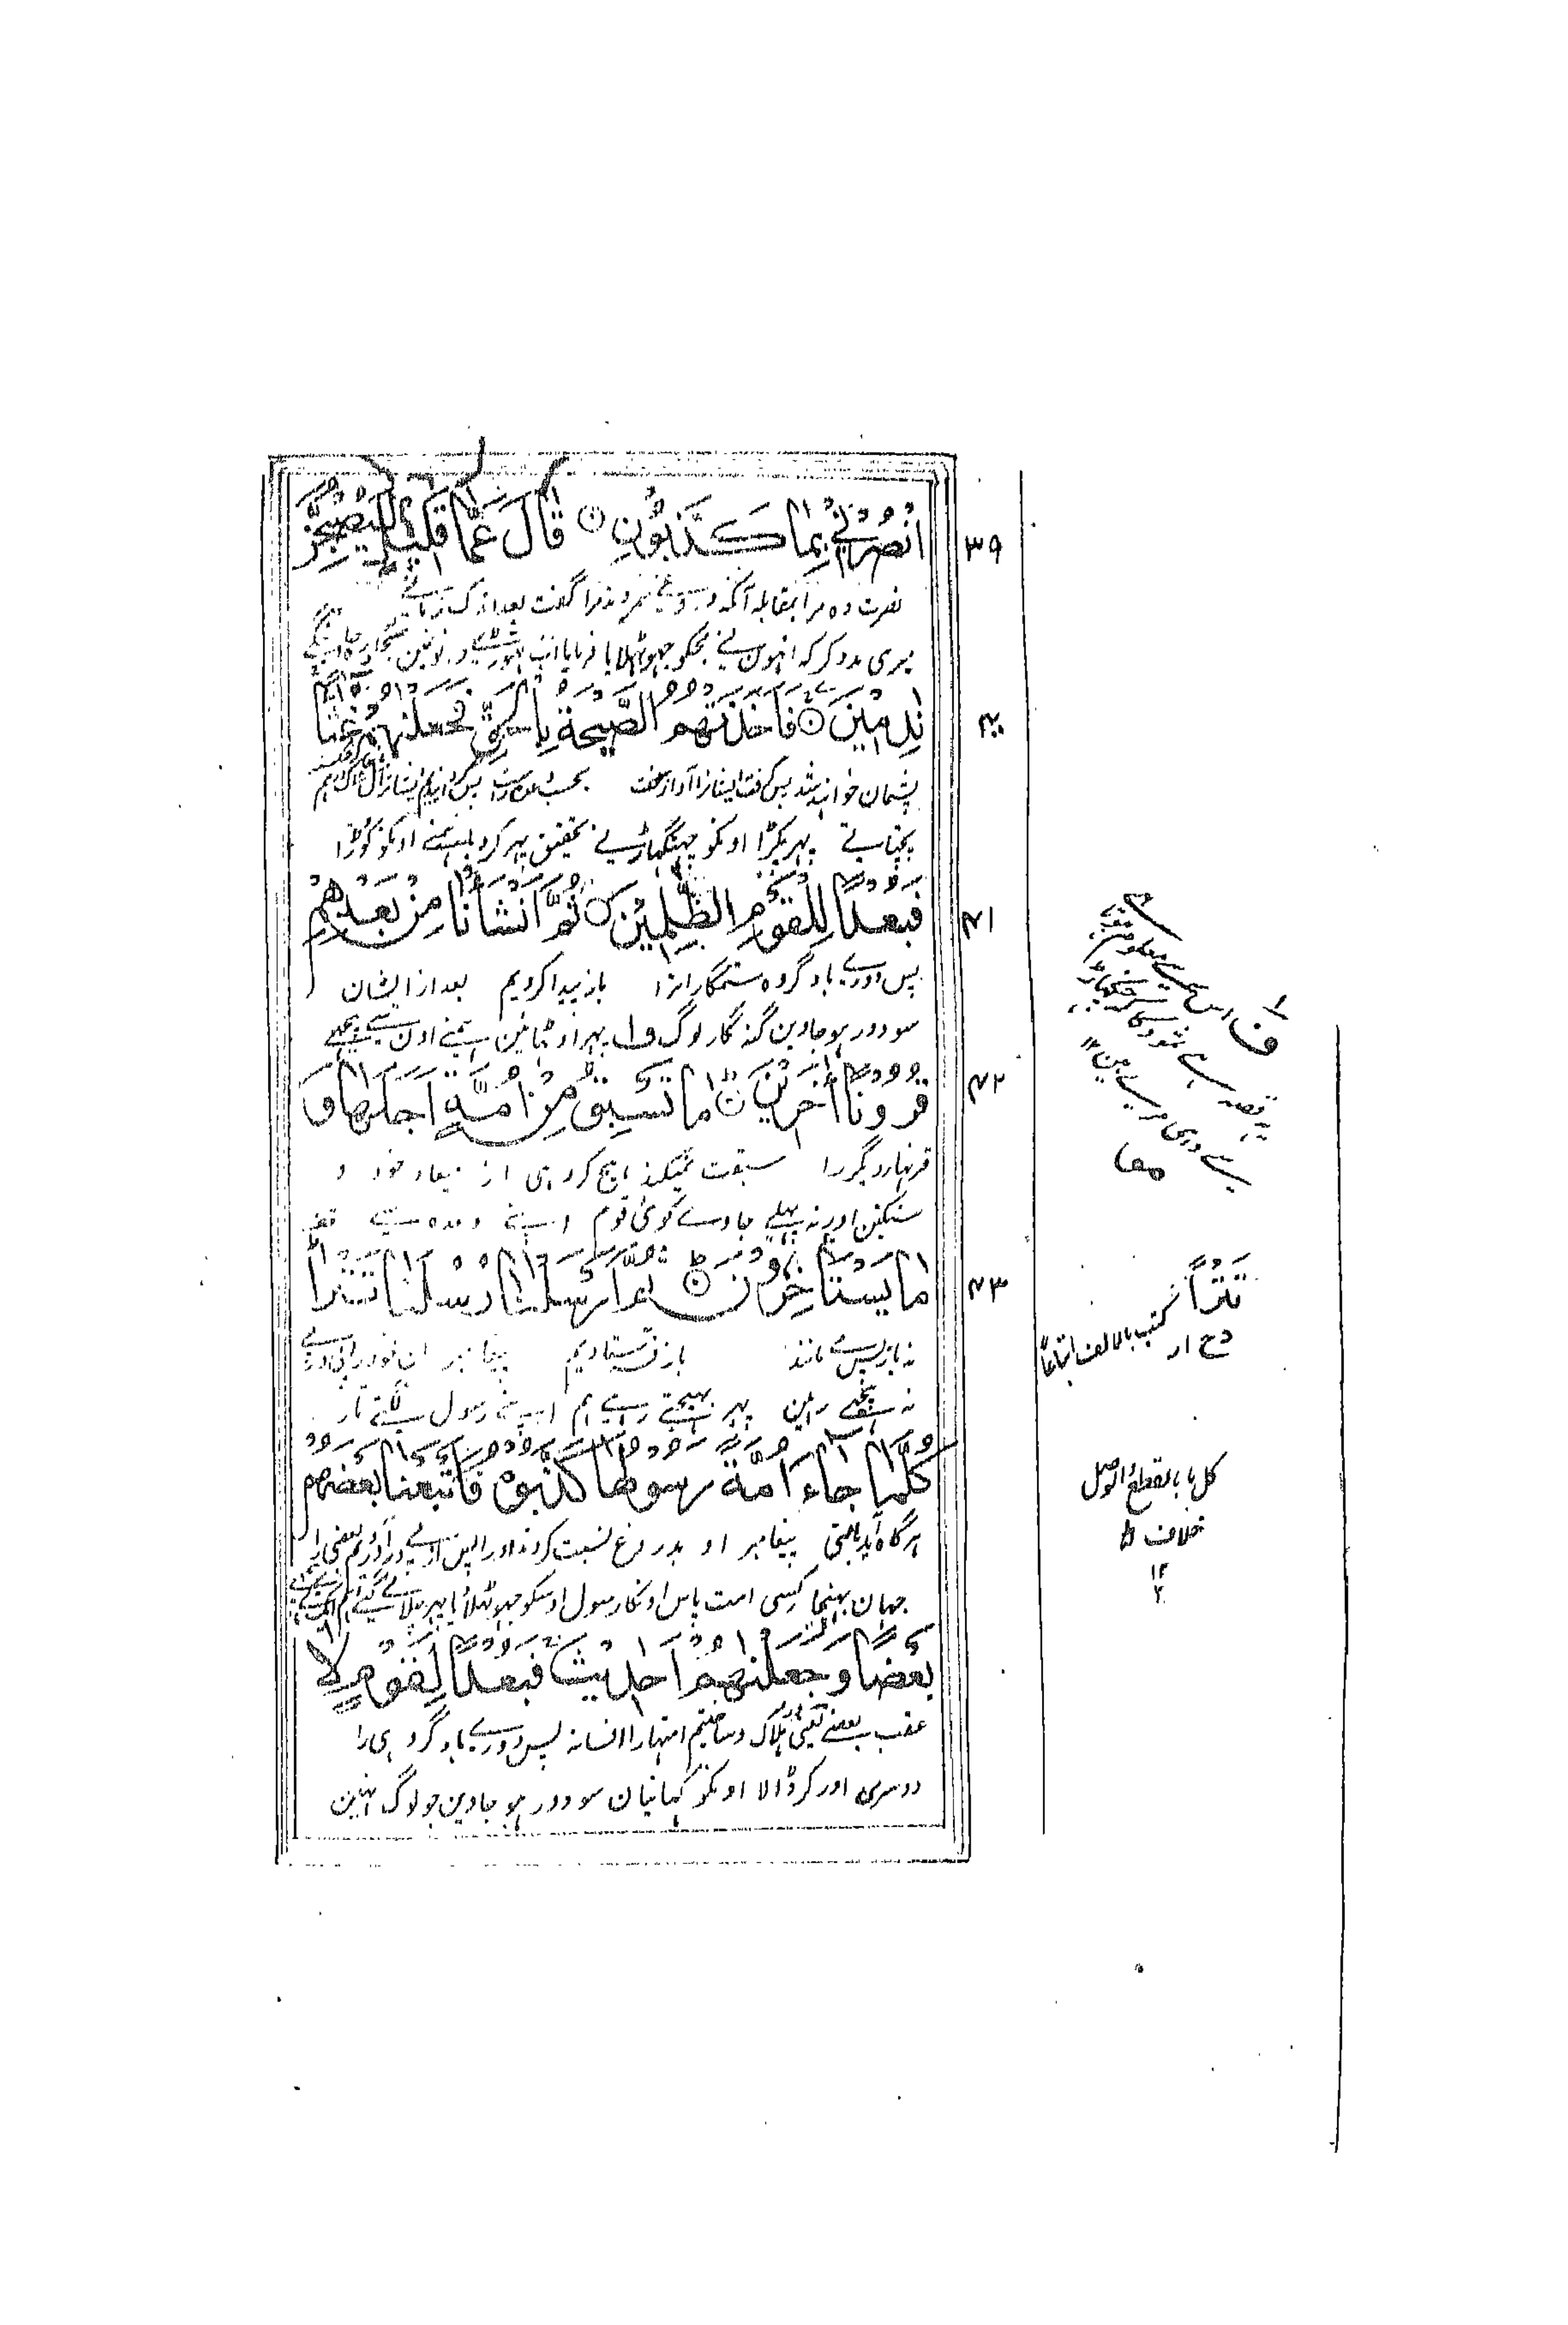 انْصُرْنِيْ بِمَا كَذَّبُوْنِ ۝ قَالَ عَمَّا قَلِيْلٍ لَّيُصْبِحُنَّ
۳۹
نصرت ده مرا بمقابله آنکه دروغ شمردند مرا گفت بعد از اندک زمانے
میری مدد کر که انہون نے مجکو جہوٹہلایا فرمایا اب تہوڑے دنونمین
نٰدِمِيْنَ ۝ فَاَخَذَتْهُمُ الصَّيْحَةُ بِالْحَقِّ فَجَعَلْنٰهُمْ غُثَآءً
۴۰
پشمان خواهند شد پس گرفت ایشانرا آواز سخت بحسب وعده راست پس گردانیدیم ایشانرا
پچتاتے پہر پکڑا اونکو چنگہاڑ نے تحقیق پہر کردیا ہمنے اونکو کوڑا
فَبُعْدًا لِّلْقَوْمِ الظّٰلِمِيْنَ ۝ ثُمَّ اَنْشَأْنَا مِنْۢ بَعْدِهِمْ
۴۱
پس دورے باد گروه ستمگارانرا باز پیدا کردیم بعد از ایشان
سو دور ہو جاوین گنہگار لوگ ف۱ پہر اوٹہائین ہمنے اون سے پیچہے
قُرُوْنًا اٰخَرِيْنَ ۝ مَا تَسْبِقُ مِنْ اُمَّةٍ اَجَلَهَا وَ
۴۲
قرنہا دیگر را سبقت نمیکند ہیچ گروہی از میعاد خود و
سنگتین اور نہ پہلے جاوے کوئی قوم اپنے وعدہ سے
مَا يَسْتَأْخِرُوْنَ ۝ ثُمَّ اَرْسَلْنَا رُسُلَنَا تَتْرَاۗ
۴۳
نہ باز پس مانند باز فرستادیم پیغامبران خود را پے در پے
نہ پیچہے رہین پہر بہیجتے رہے ہم اپنے رسول لگتے تار
كُلَّمَا جَآءَ اُمَّةً رَّسُوْلُهَا كَذَّبُوْهُ فَاَتْبَعْنَا بَعْضَهُمْ
ہرگاه آمد بامتی پیغامبر او بدروغ نسبت کردند اورا پس از پے در آوردیم بعضی را
جہان پہنچا کسی امت پاس اونکا رسول اوسکو جہوٹہلایا پہر چلاتے گئے ہم
بَعْضًا وَّجَعَلْنٰهُمْ اَحَادِيْثَ فَبُعْدًا لِّقَوْمٍ لَّا
عقب بعضے یعنی ہلاک وساختیم اینہارا افسانه پس دورے باد گروہی را
دوسری اور کر ڈالا اونکو کہانیان سو دور ہو جاوین جو لوگ نہین
ف۱ اس سے معلوم
یہ قصہ ہے ثمود کا
تَتْرًا
كتب بالالف اتباعًا
كل ما بالقطع والوصل
خلاف
۱۲